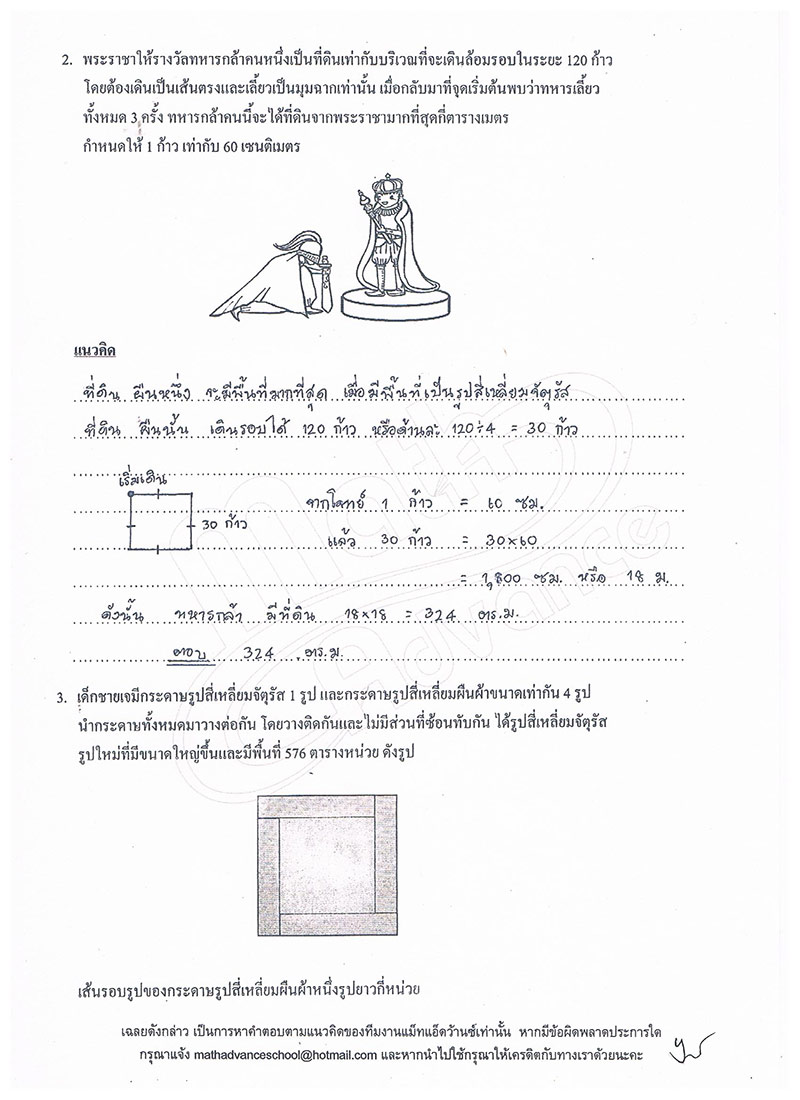 2. พระราชาให้รางวัลทหารกล้าคนหนึ่งเป็นที่ดินเท่ากับบริเวณที่จะเดินล้อมรอบในระยะ 120 ก้าว
โดยต้องเดินเป็นเส้นตรงและเลี้ยวเป็นมุมฉากเท่านั้น เมื่อกลับมาที่จุดเริ่มต้นพบว่าทหารเลี้ยว
ทั้งหมด 3 ครั้ง ทหารกล้าคนนี้จะได้ที่ดินจากพระราชามากที่สุดกี่ตารางเมตร
กำหนดให้ 1 ก้าว เท่ากับ 60 เซนติเมตร
แนวคิด
ที่ดิน ผืนหนึ่ง จะมีพื้นที่มากที่สุด เมื่อมีพื้นที่เป็นรูปสี่เหลี่ยมจัตุรัส
ที่ดิน ผืนนั้น เดินรอบได้ 120 ก้าว หรือด้านละ 120÷4 = 30 ก้าว
เริ่มเดิน
จากโจทย์ 1 ก้าว = 60 ซม.
30 ก้าว
แล้ว 30 ก้าว = 30×60
= 1,800 ซม. หรือ 18 ม.
ดังนั้น ทหารกล้า มีที่ดิน 18×18 = 324 ตร.ม.
ตอบ 324 ตร.ม.
Math Advance
3. เด็กชายเจมีกระดาษรูปสี่เหลี่ยมจัตุรัส 1 รูป และกระดาษรูปสี่เหลี่ยมผืนผ้าขนาดเท่ากัน 4 รูป
นำกระดาษทั้งหมดมาวางต่อกัน โดยวางติดกันและไม่มีส่วนที่ซ้อนทับกัน ได้รูปสี่เหลี่ยมจัตุรัส
รูปใหม่ที่มีขนาดใหญ่ขึ้นและมีพื้นที่ 576 ตารางหน่วย ดังรูป
เส้นรอบรูปของกระดาษรูปสี่เหลี่ยมผืนผ้าหนึ่งรูปยาวกี่หน่วย
เฉลยดังกล่าว เป็นการหาคำตอบตามแนวคิดของทีมงานแม็ทแอ็ดว้านซ์เท่านั้น หากมีข้อผิดพลาดประการใด
กรุณาแจ้ง mathadvanceschool@hotmail.com และหากนำไปใช้กรุณาให้เครดิตกับทางเราด้วยนะคะ